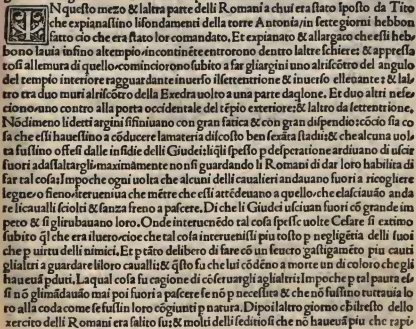 N questo mezo & laltra parte delli Romani a chui era stato iposto da Tito
che expianassino lifondamenti della torre Antonia/in sette giorni hebbon
fatto cio che era stato lor comandato, Et expianato & allargato che essi heb
bono lauia infino altempio/incontinẽte entrorono dentro laltre schiere: & appressa
cosi allemura di quello/cominciorono subito a far gliargini uno alriscõtro del angulo
del tempio interiore ragguardante inuerso illsettentrione & inuerso ellenante: & lal
tro era duo muri alriscõtro della Exedra uolto a una parte daqlone. Et duo altri nesc
ciono/uno contro alla porta occidentale del tẽpio exteriore: & laltro da settentrione,
Nõdimeno li detti argini si finiuano con gran fatica & con gran dispendio: cõcio sia co
sa che essi hauessino a cõducere lamateria discosto ben sexãta stadii: & che alcuna uol
ta fussino offesi dalle insidie delli Giudei: liq̃li spesso p desperatione ardiuano di uscir
fuori adassaltargli: maximamente non si guardando li Romani di dar loro habilita di
far tal cosa: Impoche ogni uolta che alcuni delli caualieri andauano fuori a ricogliere
legne/o fieno/interueniua che mẽtre che essi attẽdeuano a quello/che elasciauão anda
re licaualli sciolti & sanza freno a pascere. Di che li Giudei usciuan fuori cõ grande im
peto & si glirubauano loro. Onde interuenẽdo tal cosa spesse uolte Cesare si extimo
subito q̃l che era iluero/cioe che tal cosa interuenissi piu tosto p negligẽtia delli suoi
che p uirtu delli nimici, Et ptãto delibero di fare cõ un seuero gastigamẽto piu cauti
glialtri a guardare liloro caualli: & q̃sto fu che lui cõdẽno a morte un di coloro che gli
haueua pduti, Laqual cosa fu cagione di cõseruargli aglialtri: Impoche p tal paura es
si nõ glimãdauão mai poi fuori a pascere se nõ p necessita & che nõ fussino tuttauia lo
ro alla coda come se fussin loro cõgiunti p natura. Dipoi laltro giorno chiltesto dello
exercito delli Romani era salito su: & molti delli seditiosi che nõ haueuã piu che rapire